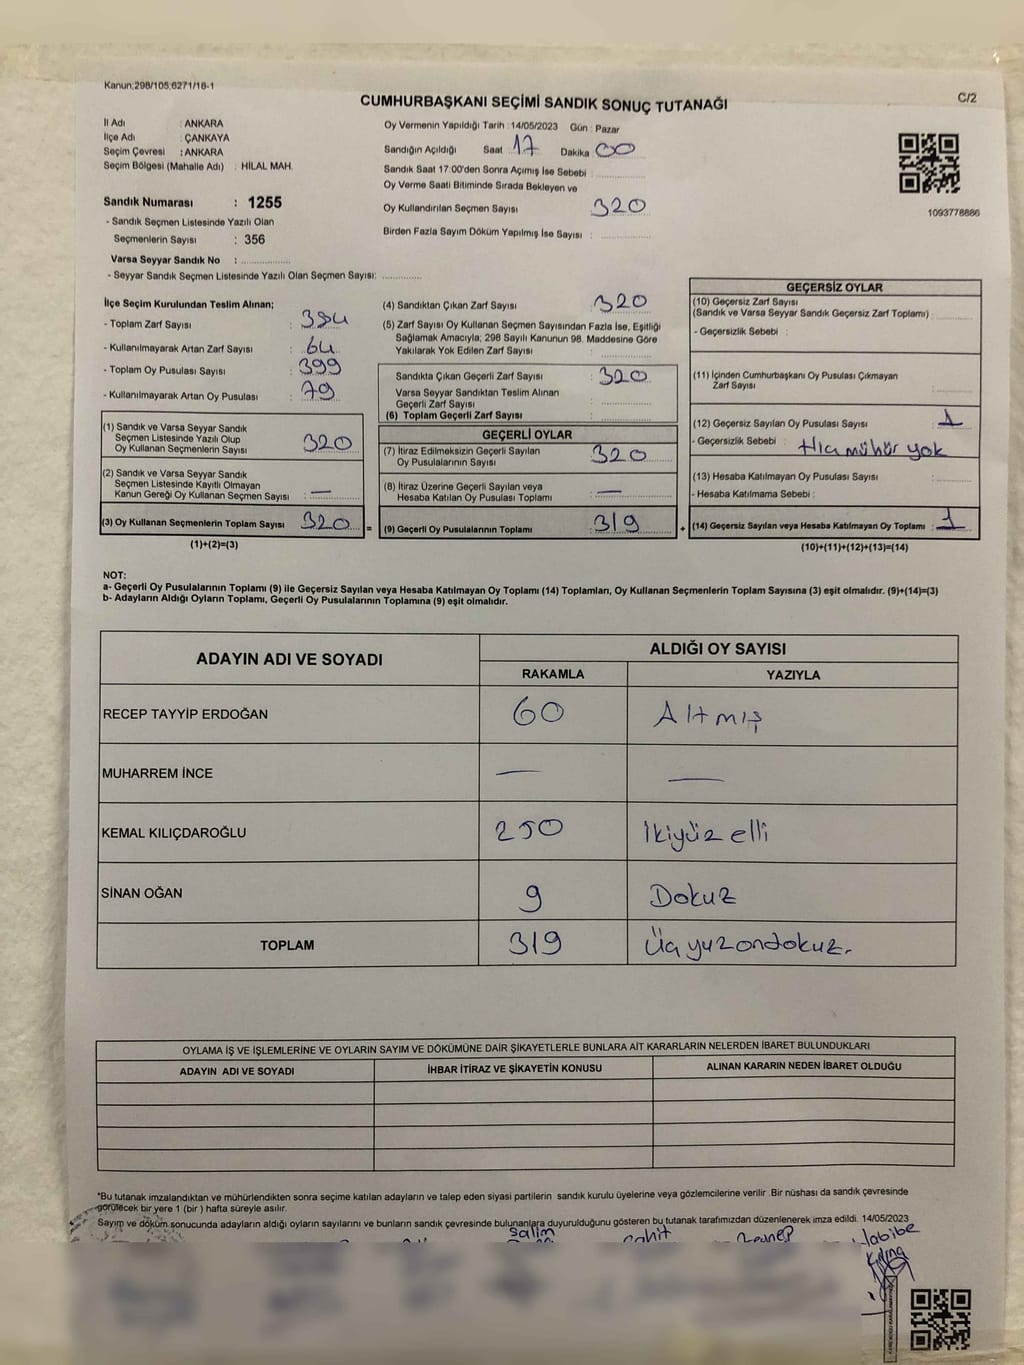 Kanun:298/105,6271/16-1
C/2
CUMHURBAŞKANI SEÇİMİ SANDIK SONUÇ TUTANAĞI
İl Adı : ANKARA
İlçe Adı : ÇANKAYA
Seçim Çevresi : ANKARA
Seçim Bölgesi (Mahalle Adı) : HİLAL MAH.
Sandık Numarası : 1255
- Sandık Seçmen Listesinde Yazılı Olan
Seçmenlerin Sayısı : 356
Varsa Seyyar Sandık No :
- Seyyar Sandık Seçmen Listesinde Yazılı Olan Seçmen Sayısı:
Oy Vermenin Yapıldığı Tarih : 14/05/2023 Gün : Pazar
Sandığın Açıldığı Saat 17 Dakika 00
Sandık Saat 17:00'den Sonra Açımış İse Sebebi :
Oy Verme Saati Bitiminde Sırada Bekleyen ve
Oy Kullandırılan Seçmen Sayısı 320
Birden Fazla Sayım Döküm Yapılmış İse Sayısı :
1093778886
İlçe Seçim Kurulundan Teslim Alınan;
- Toplam Zarf Sayısı : 384
- Kullanılmayarak Artan Zarf Sayısı : 64
- Toplam Oy Pusulası Sayısı : 399
- Kullanılmayarak Artan Oy Pusulası : 79
(1) Sandık ve Varsa Seyyar Sandık
Seçmen Listesinde Yazılı Olup
Oy Kullanan Seçmenlerin Sayısı 320
(2) Sandık ve Varsa Seyyar Sandık
Seçmen Listesinde Kayıtlı Olmayan
Kanun Gereği Oy Kullanan Seçmen Sayısı : —
(3) Oy Kullanan Seçmenlerin Toplam Sayısı 320 =
(1)+(2)=(3)
(4) Sandıktan Çıkan Zarf Sayısı 320
(5) Zarf Sayısı Oy Kullanan Seçmen Sayısından Fazla İse, Eşitliği
Sağlamak Amacıyla; 298 Sayılı Kanunun 98. Maddesine Göre
Yakılarak Yok Edilen Zarf Sayısı :
Sandıkta Çıkan Geçerli Zarf Sayısı : 320
Varsa Seyyar Sandıktan Teslim Alınan
Geçerli Zarf Sayısı :
(6) Toplam Geçerli Zarf Sayısı :
GEÇERLİ OYLAR
(7) İtiraz Edilmeksizin Geçerli Sayılan
Oy Pusulalarının Sayısı : 320
(8) İtiraz Üzerine Geçerli Sayılan veya
Hesaba Katılan Oy Pusulası Toplamı : —
(9) Geçerli Oy Pusulalarının Toplamı : 319 +
GEÇERSİZ OYLAR
(10) Geçersiz Zarf Sayısı
(Sandık ve Varsa Seyyar Sandık Geçersiz Zarf Toplamı) :
- Geçersizlik Sebebi :
(11) İçinden Cumhurbaşkanı Oy Pusulası Çıkmayan
Zarf Sayısı :
(12) Geçersiz Sayılan Oy Pusulası Sayısı : 1
- Geçersizlik Sebebi : Hiç mühür yok
(13) Hesaba Katılmayan Oy Pusulası Sayısı :
- Hesaba Katılmama Sebebi :
(14) Geçersiz Sayılan veya Hesaba Katılmayan Oy Toplamı : 1
(10)+(11)+(12)+(13)=(14)
NOT:
a- Geçerli Oy Pusulalarının Toplamı (9) ile Geçersiz Sayılan veya Hesaba Katılmayan Oy Toplamı (14) Toplamları, Oy Kullanan Seçmenlerin Toplam Sayısına (3) eşit olmalıdır. (9)+(14)=(3)
b- Adayların Aldığı Oyların Toplamı, Geçerli Oy Pusulalarının Toplamına (9) eşit olmalıdır.
ADAYIN ADI VE SOYADI
ALDIĞI OY SAYISI
RAKAMLA YAZIYLA
RECEP TAYYİP ERDOĞAN 60 Altmış
MUHARREM İNCE — —
KEMAL KILIÇDAROĞLU 250 İkiyüz elli
SİNAN OĞAN 9 Dokuz
TOPLAM 319 Üçyüzondokuz.
OYLAMA İŞ VE İŞLEMLERİNE VE OYLARIN SAYIM VE DÖKÜMÜNE DAİR ŞİKAYETLERLE BUNLARA AİT KARARLARIN NELERDEN İBARET BULUNDUKLARI
ADAYIN ADI VE SOYADI İHBAR İTİRAZ VE ŞİKAYETİN KONUSU ALINAN KARARIN NEDEN İBARET OLDUĞU
*Bu tutanak imzalandıktan ve mühürlendikten sonra seçime katılan adayların ve talep eden siyasi partilerin sandık kurulu üyelerine veya gözlemcilerine verilir. Bir nüshası da sandık çevresinde
görülecek bir yere 1 (bir ) hafta süreyle asılır.
Sayım ve döküm sonucunda adayların aldığı oyların sayılarını ve bunların sandık çevresinde bulunanlara duyurulduğunu gösteren bu tutanak tarafımızdan düzenlenerek imza edildi. 14/05/2023
Salim Cahit Zeynep Habibe